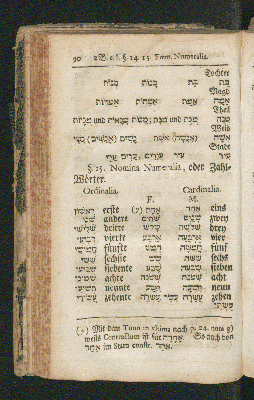 90 2B. c. 1. § 14. 15. Form. Numeralia.
Tochter
בַּת בַּת בָּנוֹת בְּנוֹת
Magd
אָמָה אֲמַת אֲמָהוֹת אַמְהוֹת
Theil
Weib
אִשָּׁה נָשִׁים נְשֵׁי
Stadt
עִיר עִיר עָרִים עָרֵי
§. 15. Nomina Numeralia, oder Zahl-
Wörter.
Ordinalia. Cardinalia.
F. M.
רִאשׁוֹן erste אַחַת (z) אֶחָד eins
שֵׁנִי andere שְׁתַּיִם שְׁנַיִם zwey
שְׁלִישִׁי dritte שָׁלֹשׁ שְׁלֹשָׁה drey
רְבִיעִי vierte אַרְבַּע אַרְבָּעָה vier
חֲמִישִׁי fünfte חָמֵשׁ חֲמִשָּׁה fünf
שִׁשִּׁי sechste שֵׁשׁ שִׁשָּׁה sechs
שְׁבִיעִי siebente שֶׁבַע שִׁבְעָה sieben
שְׁמִינִי achte שְׁמֹנֶה שְׁמֹנָה acht
תְּשִׁיעִי neunte תֵּשַׁע תִּשְׁעָה neun
עֲשִׂירִי zehente עֶשֶׂר עֲשָׂרָה zehen
(z) Mit dem Tono in ultima nach p. 24. note g)
weils Contractum ist für So auch von
אֶחָד im Statu constr. אַחַד.